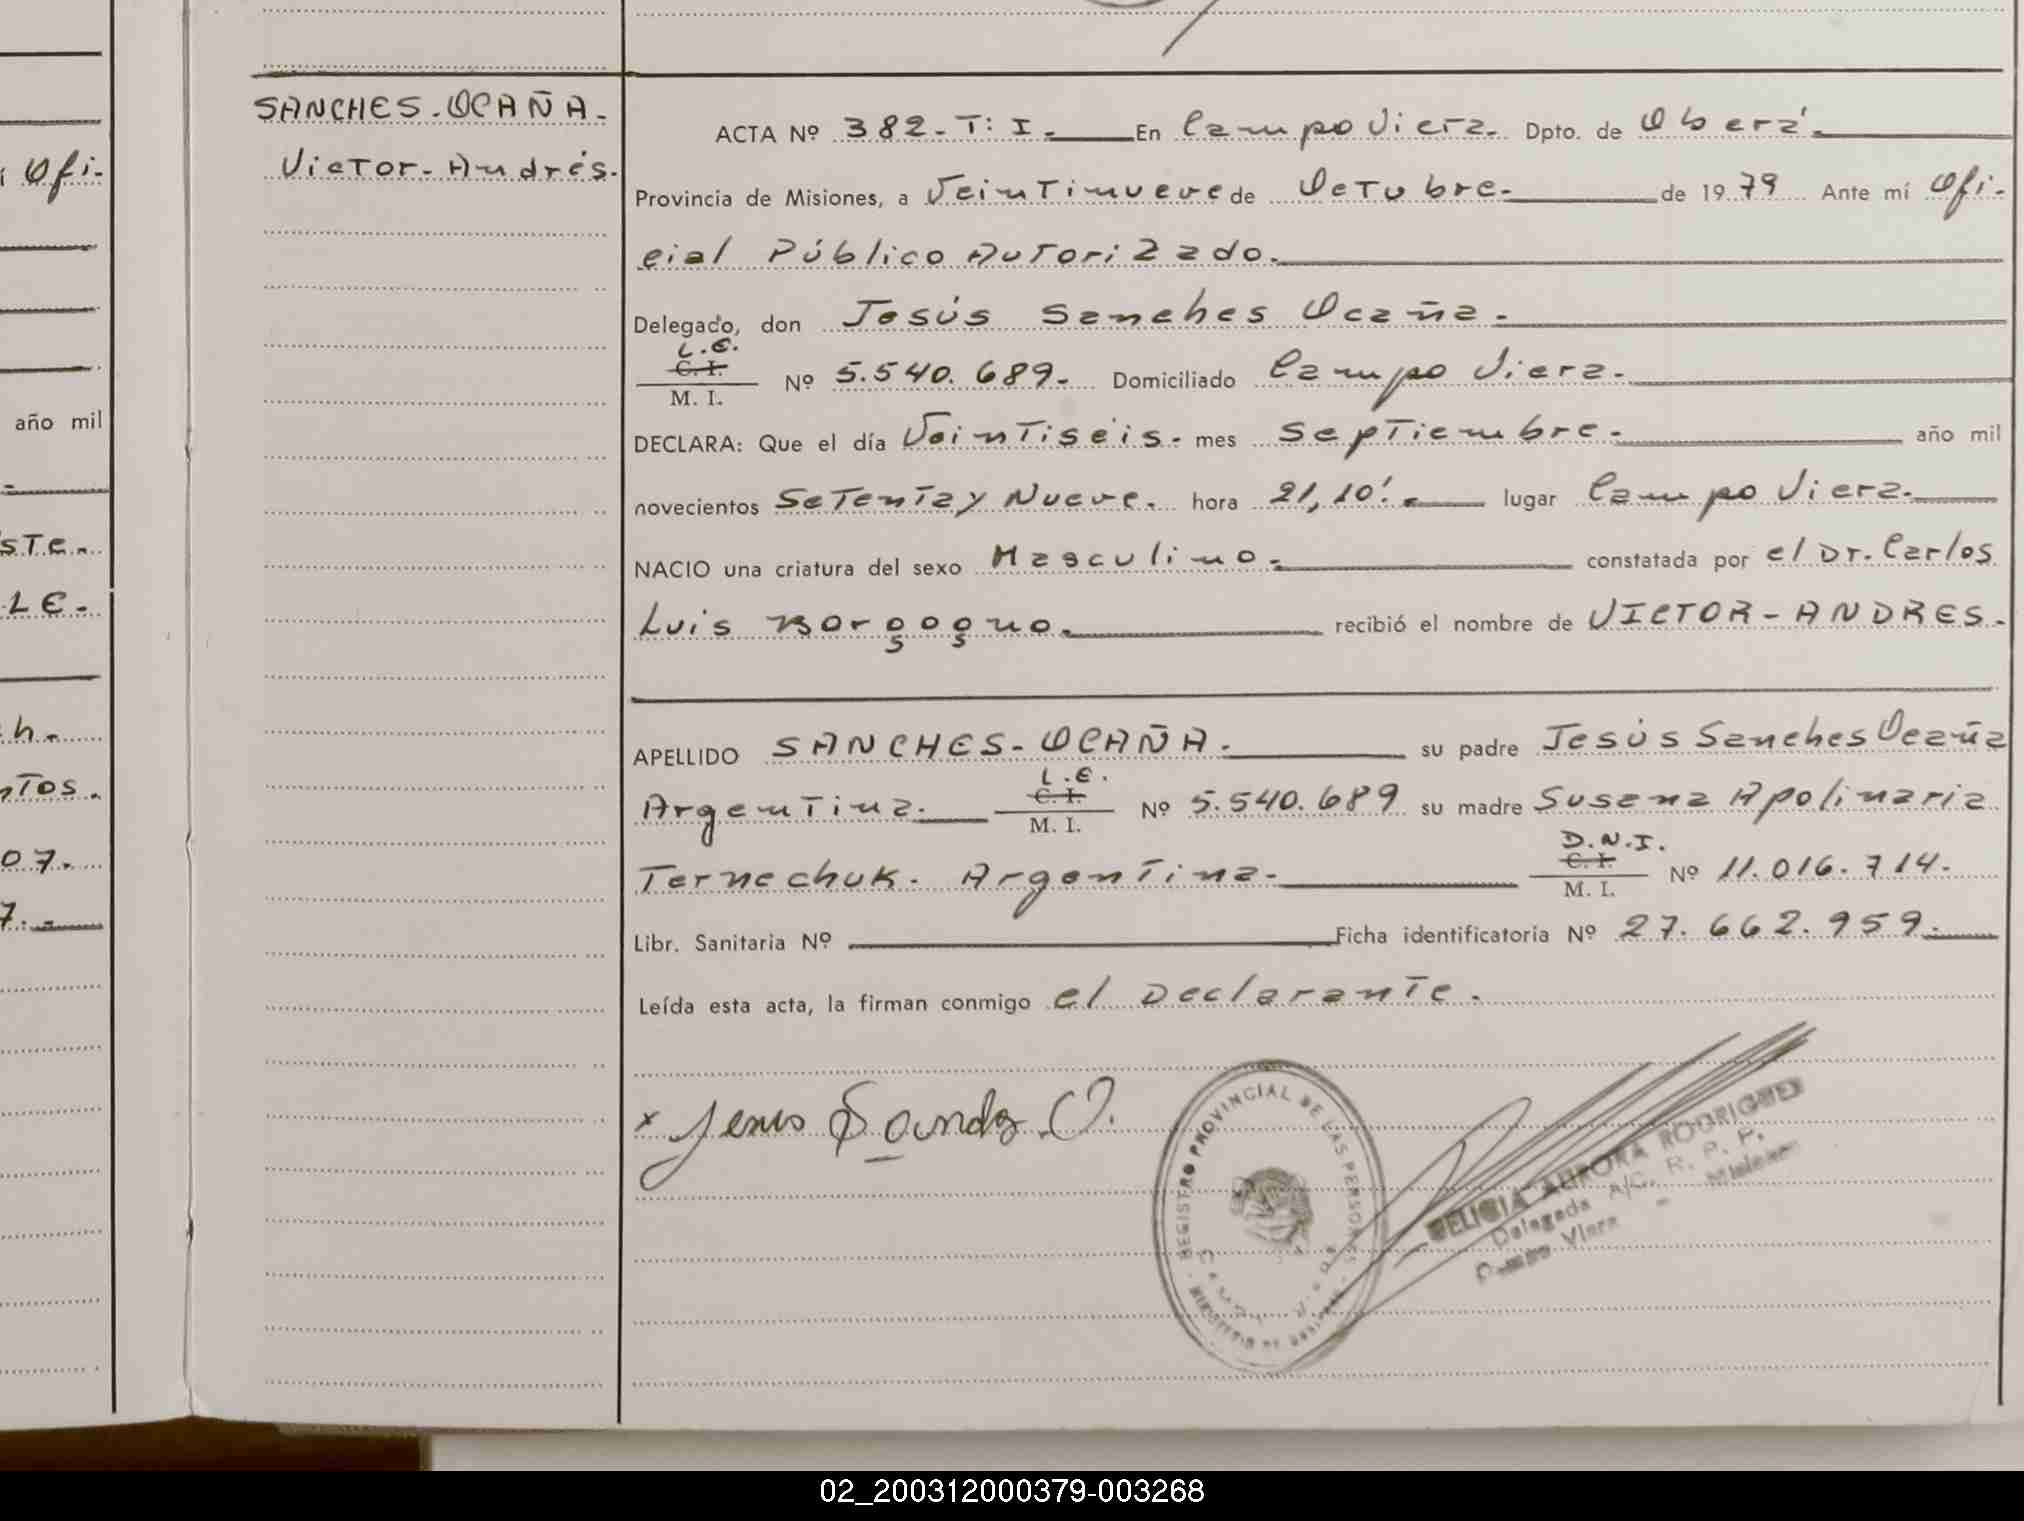 SANCHES-OCAÑA.
Victor-Andrés.
ACTA Nº 382-T:I. En Campo Viera. Dpto. de Oberá.
Provincia de Misiones, a Veintinueve de Octubre. de 1979 Ante mí Ofi-
cial Público Autorizado.
Delegado, don Jesús Sanches Ocaña.
L.E.
C. I.
M. I. Nº 5.540.689. Domiciliado Campo Viera.
DECLARA: Que el día Veintiséis. mes Septiembre. año mil
novecientos Setenta y Nueve. hora 21,10'. lugar Campo Viera.
NACIO una criatura del sexo Masculino. constatada por el Dr. Carlos
Luis Borgogno. recibió el nombre de VICTOR-ANDRES.
APELLIDO SANCHES-OCAÑA. su padre Jesús Sanches Ocaña
L.E.
Argentina. C. I. M. I. Nº 5.540.689 su madre Susana Apolinaria
D.N.I.
Ternechuk. Argentina. C. I. M. I. Nº 11.016.714.
Libr. Sanitaria Nº Ficha identificatoria Nº 27.662.959.
Leída esta acta, la firman conmigo el Declarante.
x Jesus O.
REGISTRO PROVINCIAL DE LAS PERSONAS
DELICIA AURORA RODRIGUEZ
Delegada A/C. R. P. P.
Campo Viera - Misiones
í Ofi-
año mil
STe.
LE.
h.
nTos.
07.
7.
02_200312000379-003268